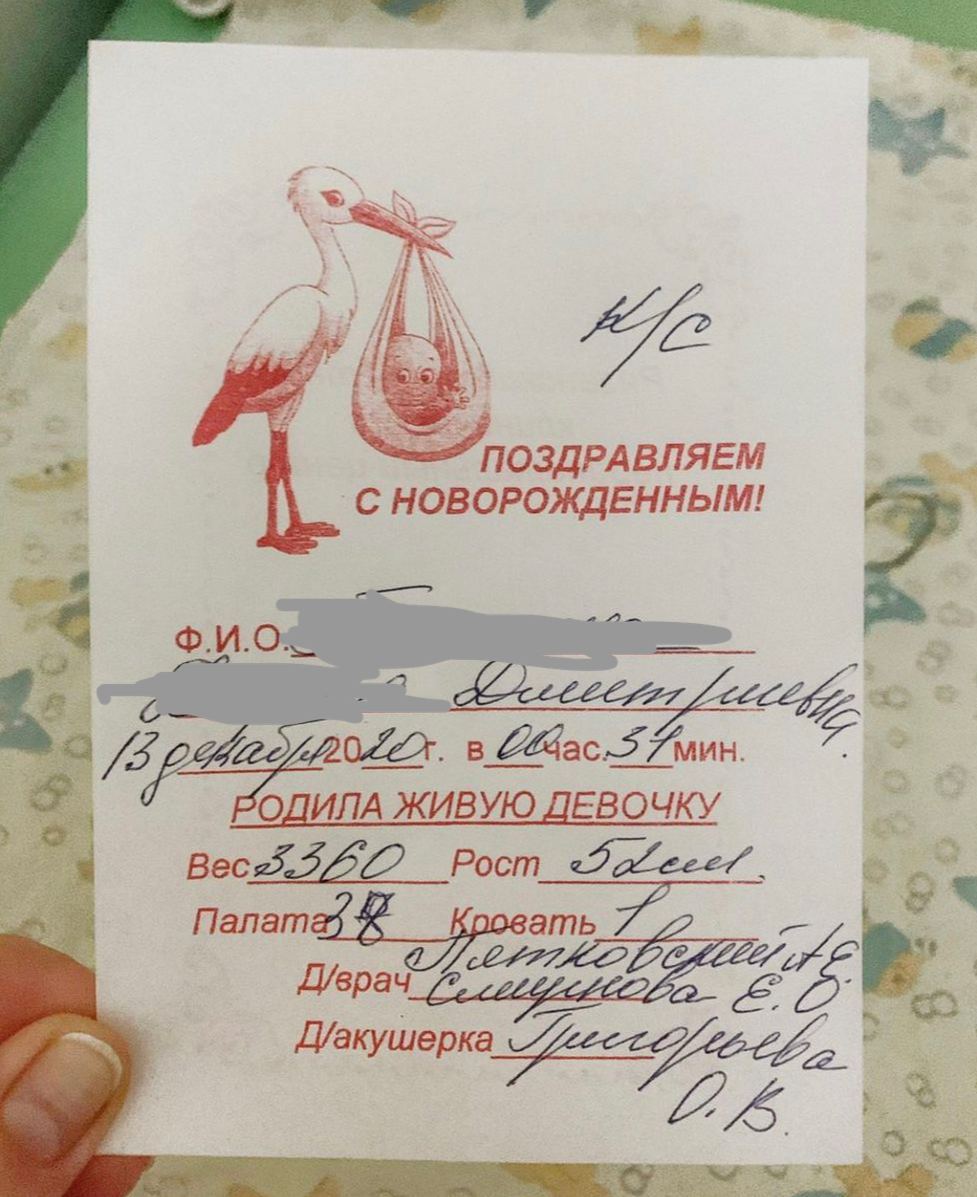 К/С
ПОЗДРАВЛЯЕМ
С НОВОРОЖДЕННЫМ!
Ф.И.О.
Дмитриевна
13 декабря 2020г. в 00 час. 31 мин.
РОДИЛА ЖИВУЮ ДЕВОЧКУ
Вес 3360 Рост 52 см.
Палата Кровать 1
Пятковский А.Е.
Д/врач Смирнова Е.О.
Д/акушерка Григорьева
О.В.